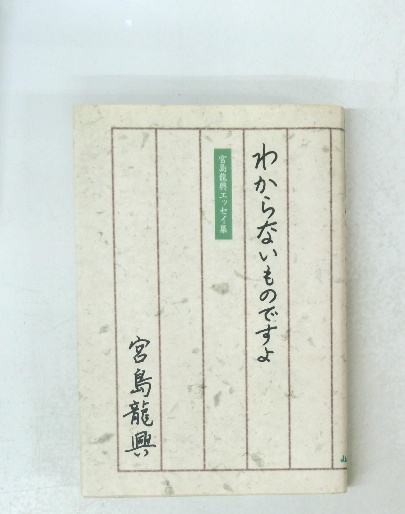 わからないものですよ
宮島龍興エッセイ集
宮島龍興